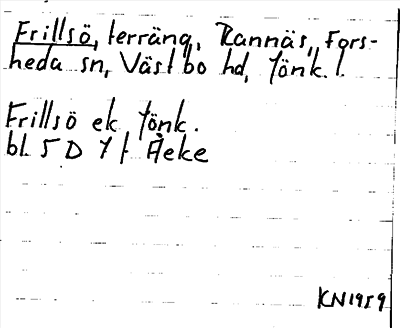 Frillsö, terräng, Rannäs, Fors-
heda sn, Västbo hd, Jönk. l.
Frillsö ek Jönk.
bl. 5 D 7 f Åeke
KN 1959